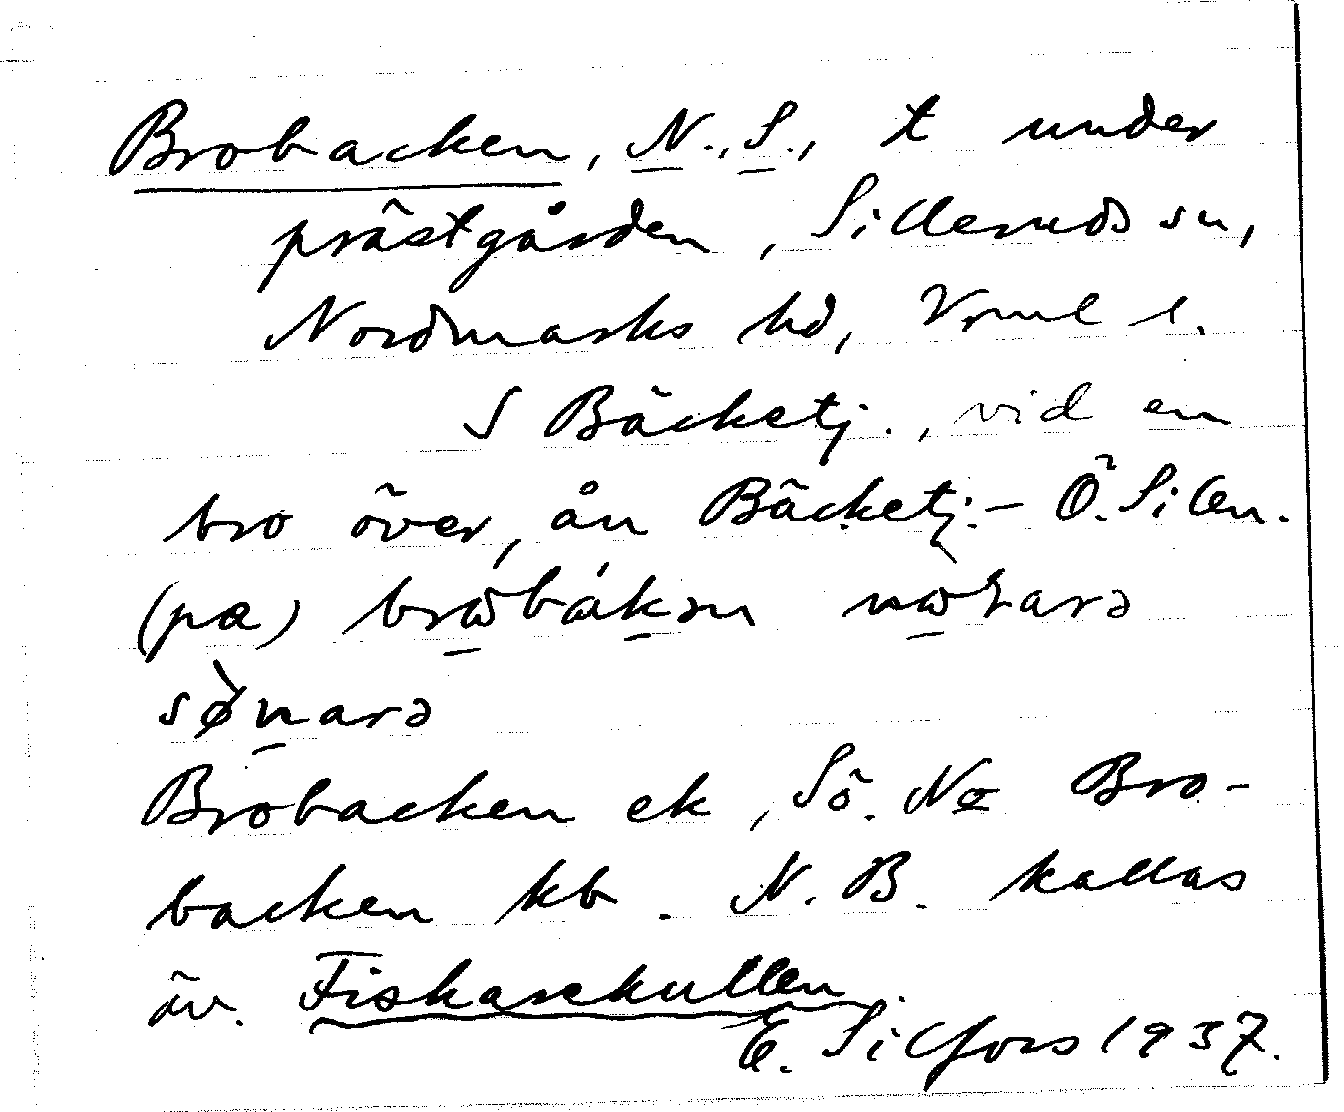 Brobacken, N., S., t under
prästgården, Silleruds sn,
Nordmarks hd, Vrml l.
S Bäcketj., vid en
bro över ån Bäcketj.– Ö. Silen.
(pæ)
Brobacken ek, Sö. No Bro-
backen kb. N. B. kallas
äv. Fiskarekullen.
E. Silfors 1937.